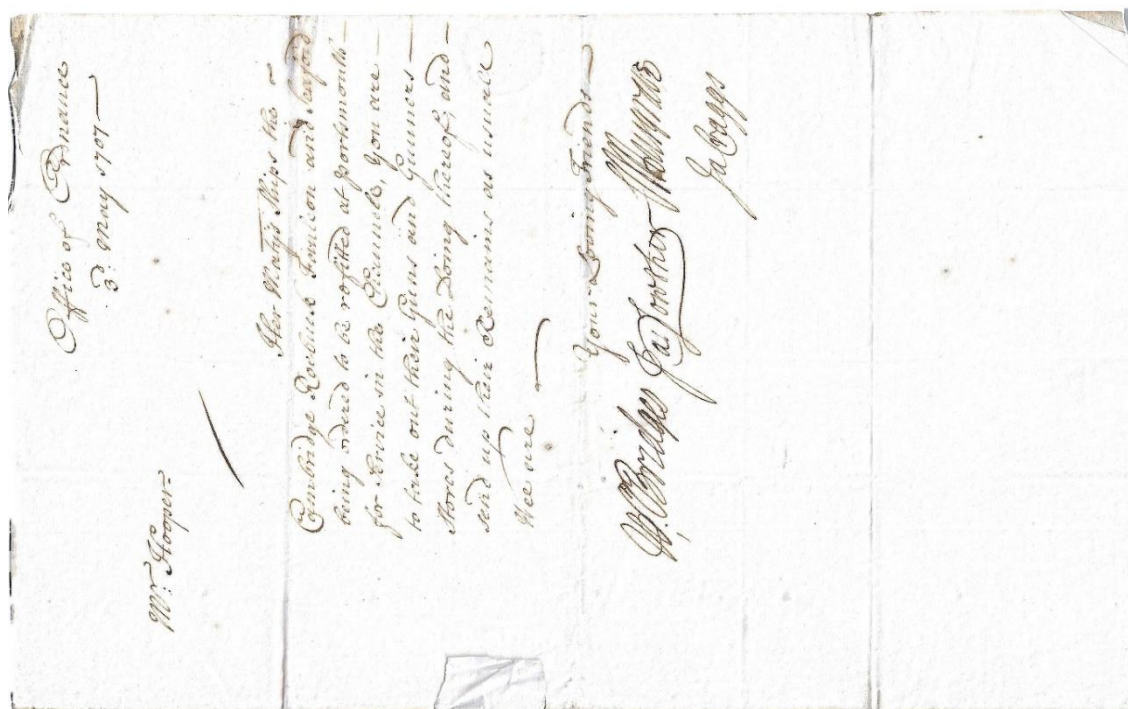 Office of Ordnance
3d: May 1707
Mr: Hooper
Her Maty's Ships the
Cambridge Roebuck and
being ordered to be refitted at Portsmouth
for Service in the Channele, You are
to take out their Guns and Gunners
Stores during the Doing thereof, and
send up their Remains as usuale
Wee are
Your Loving Friends
W: Bridges Ja Lowther
Ja Craggs